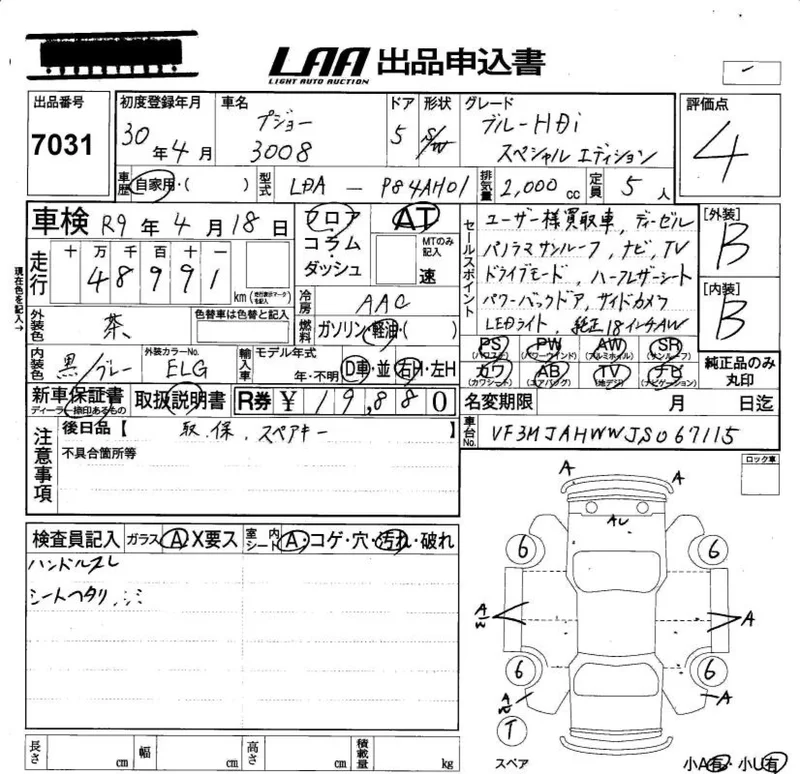 LAA 出品申込書
LIGHT AUTO AUCTION
出品番号
7031
初度登録年月
30年4月
車名
プジョー
3008
ドア
5
形状
S/W
グレード
ブルーHDi
スペシャル エディション
評価点
4
車歴 自家用・( )
型式 LDA - P84AH01
排気量 2,000 cc
定員 5 人
車検 R9 年 4 月 18 日
走行
十 万 千 百 十 一
4 8 9 9 1
km
現在色を記入→
フロア
・
コラム
・
ダッシュ
AT
MTのみ記入
速
セールスポイント
ユーザー様買取車、ディーゼル
パノラマサンルーフ、ナビ、TV
ドライブモード、ハーフレザーシート
パワーバックドア、サイドカメラ
LEDライト、純正18インチAW
[外装]
B
[内装]
B
外装色 茶
色替車は色替と記入
冷房 AAC
燃料 ガソリン・軽油・( )
内装色 黒/グレー
外装カラーNo.
ELG
輸入車 モデル年式
年・不明 D車・並 右H・左H
PS (パワステ) PW (パワーウインド) AW (アルミホイル) SR (サンルーフ)
カワ (カワシート) AB (エアバッグ) TV (地デジ) ナビ (ナビゲーション)
純正品のみ丸印
新車保証書
ディーラー捺印あるもの
取扱説明書
R券 ¥ 19,880
名変期限 月 日迄
注意事項
後日品【 取、保、スペアキー 】
不具合箇所等
車台No. VF3MJAHWWJS067115
ロック車
検査員記入 ガラス A X要ス 室内シート A・コゲ・穴・汚れ・破れ
ハンドルスレ
シートヘタリ、シミ
A
A
AU
6
6
A/W
A
6
6
A/W
A
T
スペア
小A有・小U有
長さ cm 幅 cm 高さ cm 積載量 kg